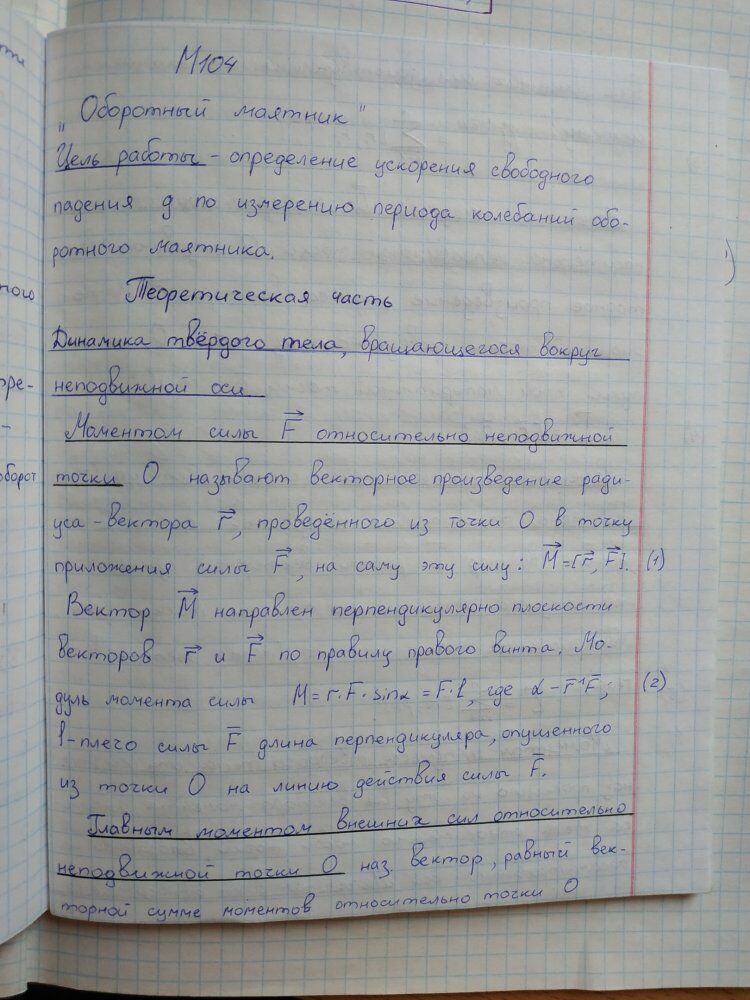 М104
„Оборотный маятник"
Цель работы - определение ускорения свободного
падения g по измерению периода колебаний обо-
ротного маятника.
Теоретическая часть
Динамика твёрдого тела, вращающегося вокруг
неподвижной оси
Моментом силы F⃗ относительно неподвижной
точки О называют векторное произведение ради-
уса-вектора r⃗, проведённого из точки О в точку
приложения силы F⃗, на саму эту силу: M⃗=[r⃗, F⃗]. (1)
Вектор M⃗ направлен перпендикулярно плоскости
векторов r⃗ и F⃗ по правилу правого винта. Мо-
дуль момента силы M=r·F·sinα=F·l, где α-r̅^F̅; (2)
l-плечо силы F̅ длина перпендикуляра, опущенного
из точки О на линию действия силы F̅.
Главным моментом внешних сил относительно
неподвижной точки О наз. вектор, равный век-
торной сумме моментов относительно точки О
ного
оре-
-
оборот